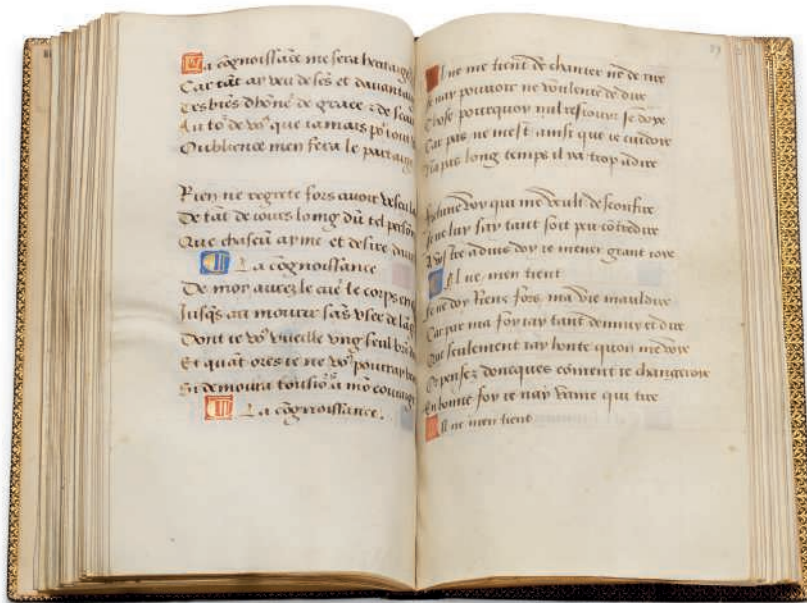 La cõgnoissãce me sera heritaige
Car tãt ay veu de sẽs et davantaige
Tes biẽs dhõne de grace & de
Au to de voꝰ que iamais
Oublience men fera le partaige
Rien ne regrete fors avoir
De tãt de iours loing dũ tel
Que chascũ ayme et desire
La cõgnoissance
De moy aurez le cuer le corps
Jusqs au mourir sãs
Dont ie voꝰ vueille ung seul
Et quãt ores ie ne voꝰ pourray
Si demoura tousioꝰs a mõ couraige
La cõgnoissance.
89
Il ne me tient de chanter ne de rire
Je nay pouvoir ne voulente de dire
Chose pourquoy nul resiouyr se doye
Car pas ne mest ainsi que ie cuidoye
Na pas long temps il va trop a dire
Fortune voy qui me veult desconfire
Je ne lay say tant soit peu cõtredire
ie mener grant ioye
Il ne men tient
Je ne doy Riens fors ma vie mauldire
Car par ma foy iay tant dennuy et dire
Que seulement iay honte quon me voye
Or pensez doncques cõment ie changeroye
En bonne foy ie nay vaine qui tire
Il ne men tient